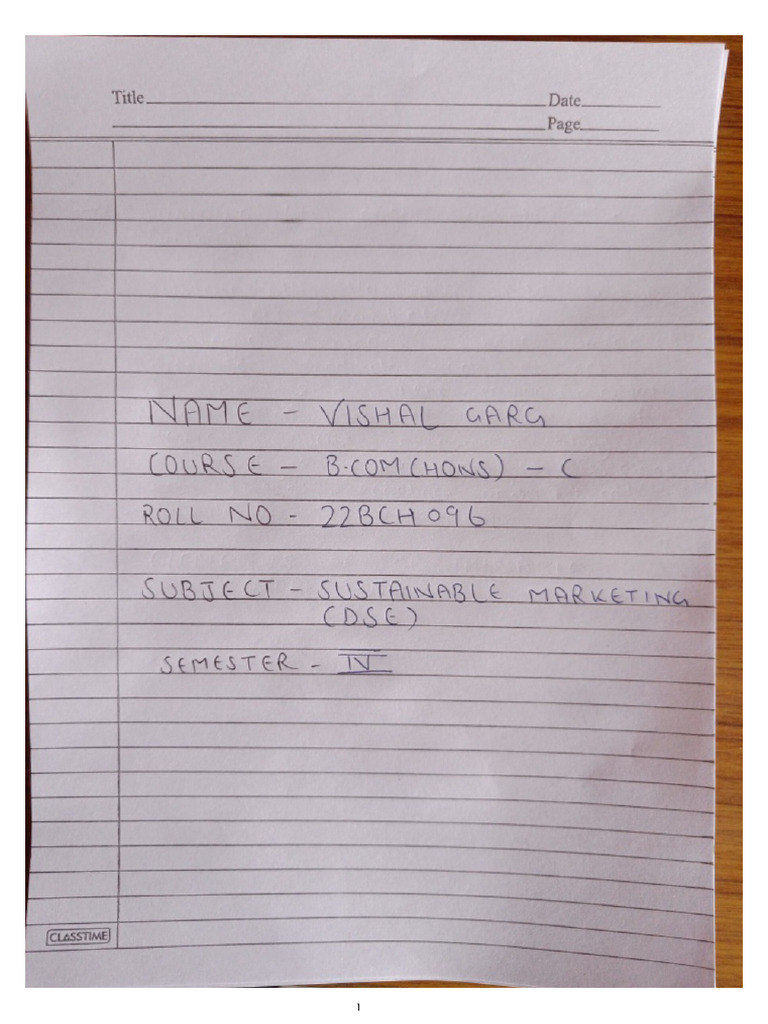 Title Date
Page
NAME - VISHAL GARG
COURSE - B.COM(HONS) - C
ROLL NO - 22BCH096
SUBJECT - SUSTAINABLE MARKETING
(DSE)
SEMESTER - IV
CLASSTIME
1